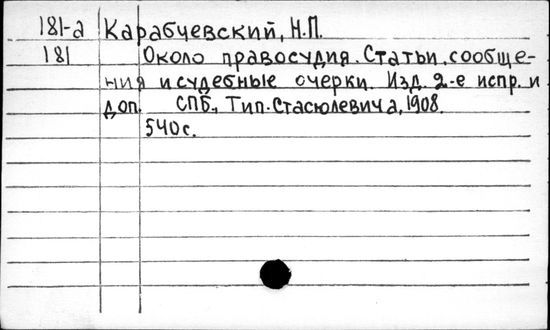 181-а Карабчевский, Н.П.
181 Около правосудия. Статьи, сообще-
ния и судебные очерки. Изд. 2-е испр. и
доп. СПБ., Тип. Стасюлевича, 1908.
540 с.